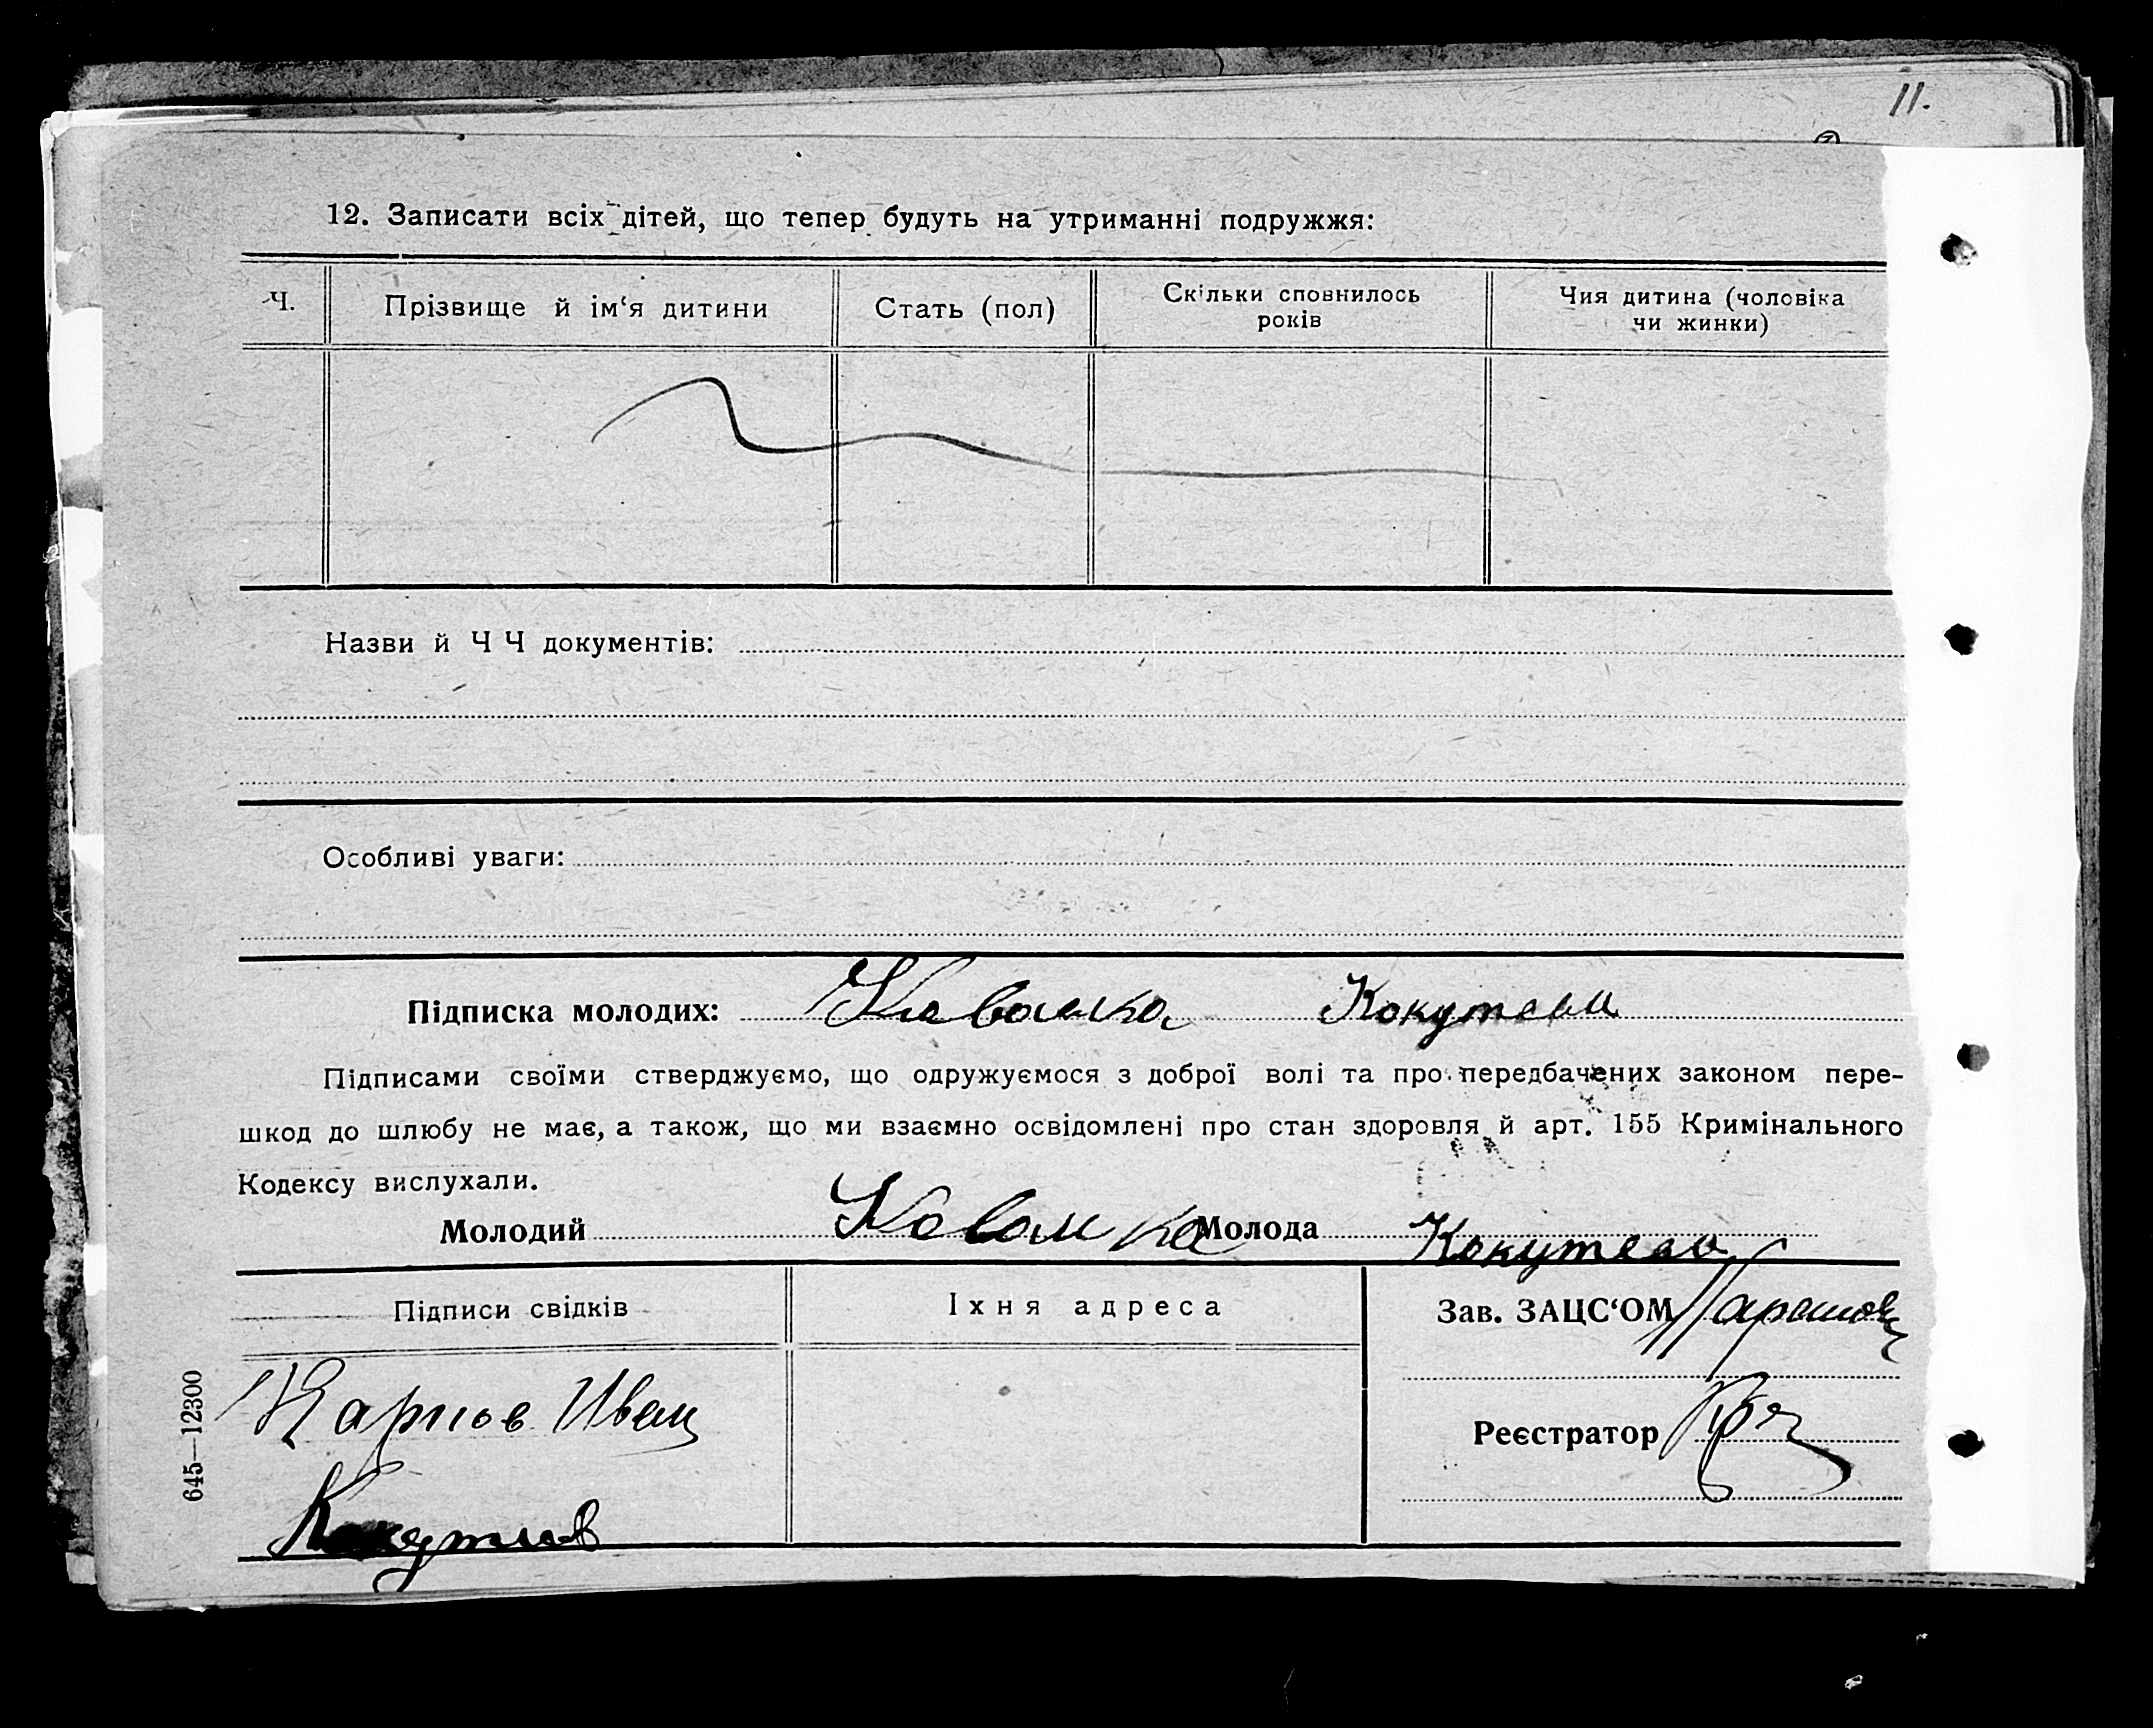 11.
12. Записати всіх дітей, що тепер будуть на утриманні подружжя:
Ч.
Прізвище й ім‘я дитини
Стать (пол)
Скільки сповнилось
років
Чия дитина (чоловіка
чи жинки)
Назви й Ч Ч документів:
Особливі уваги:
Підписка молодих:
Підписами своїми стверджуємо, що одружуємося з доброї волі та про передбачених законом пере-
шкод до шлюбу не має, а також, що ми взаємно освідомлені про стан здоровля й арт. 155 Кримінального
Кодексу вислухали.
Молодий Молода
Підписи свідків
Іхня адреса
Зав. ЗАЦС‘ОМ
Иван
Реєстратор
645—12300